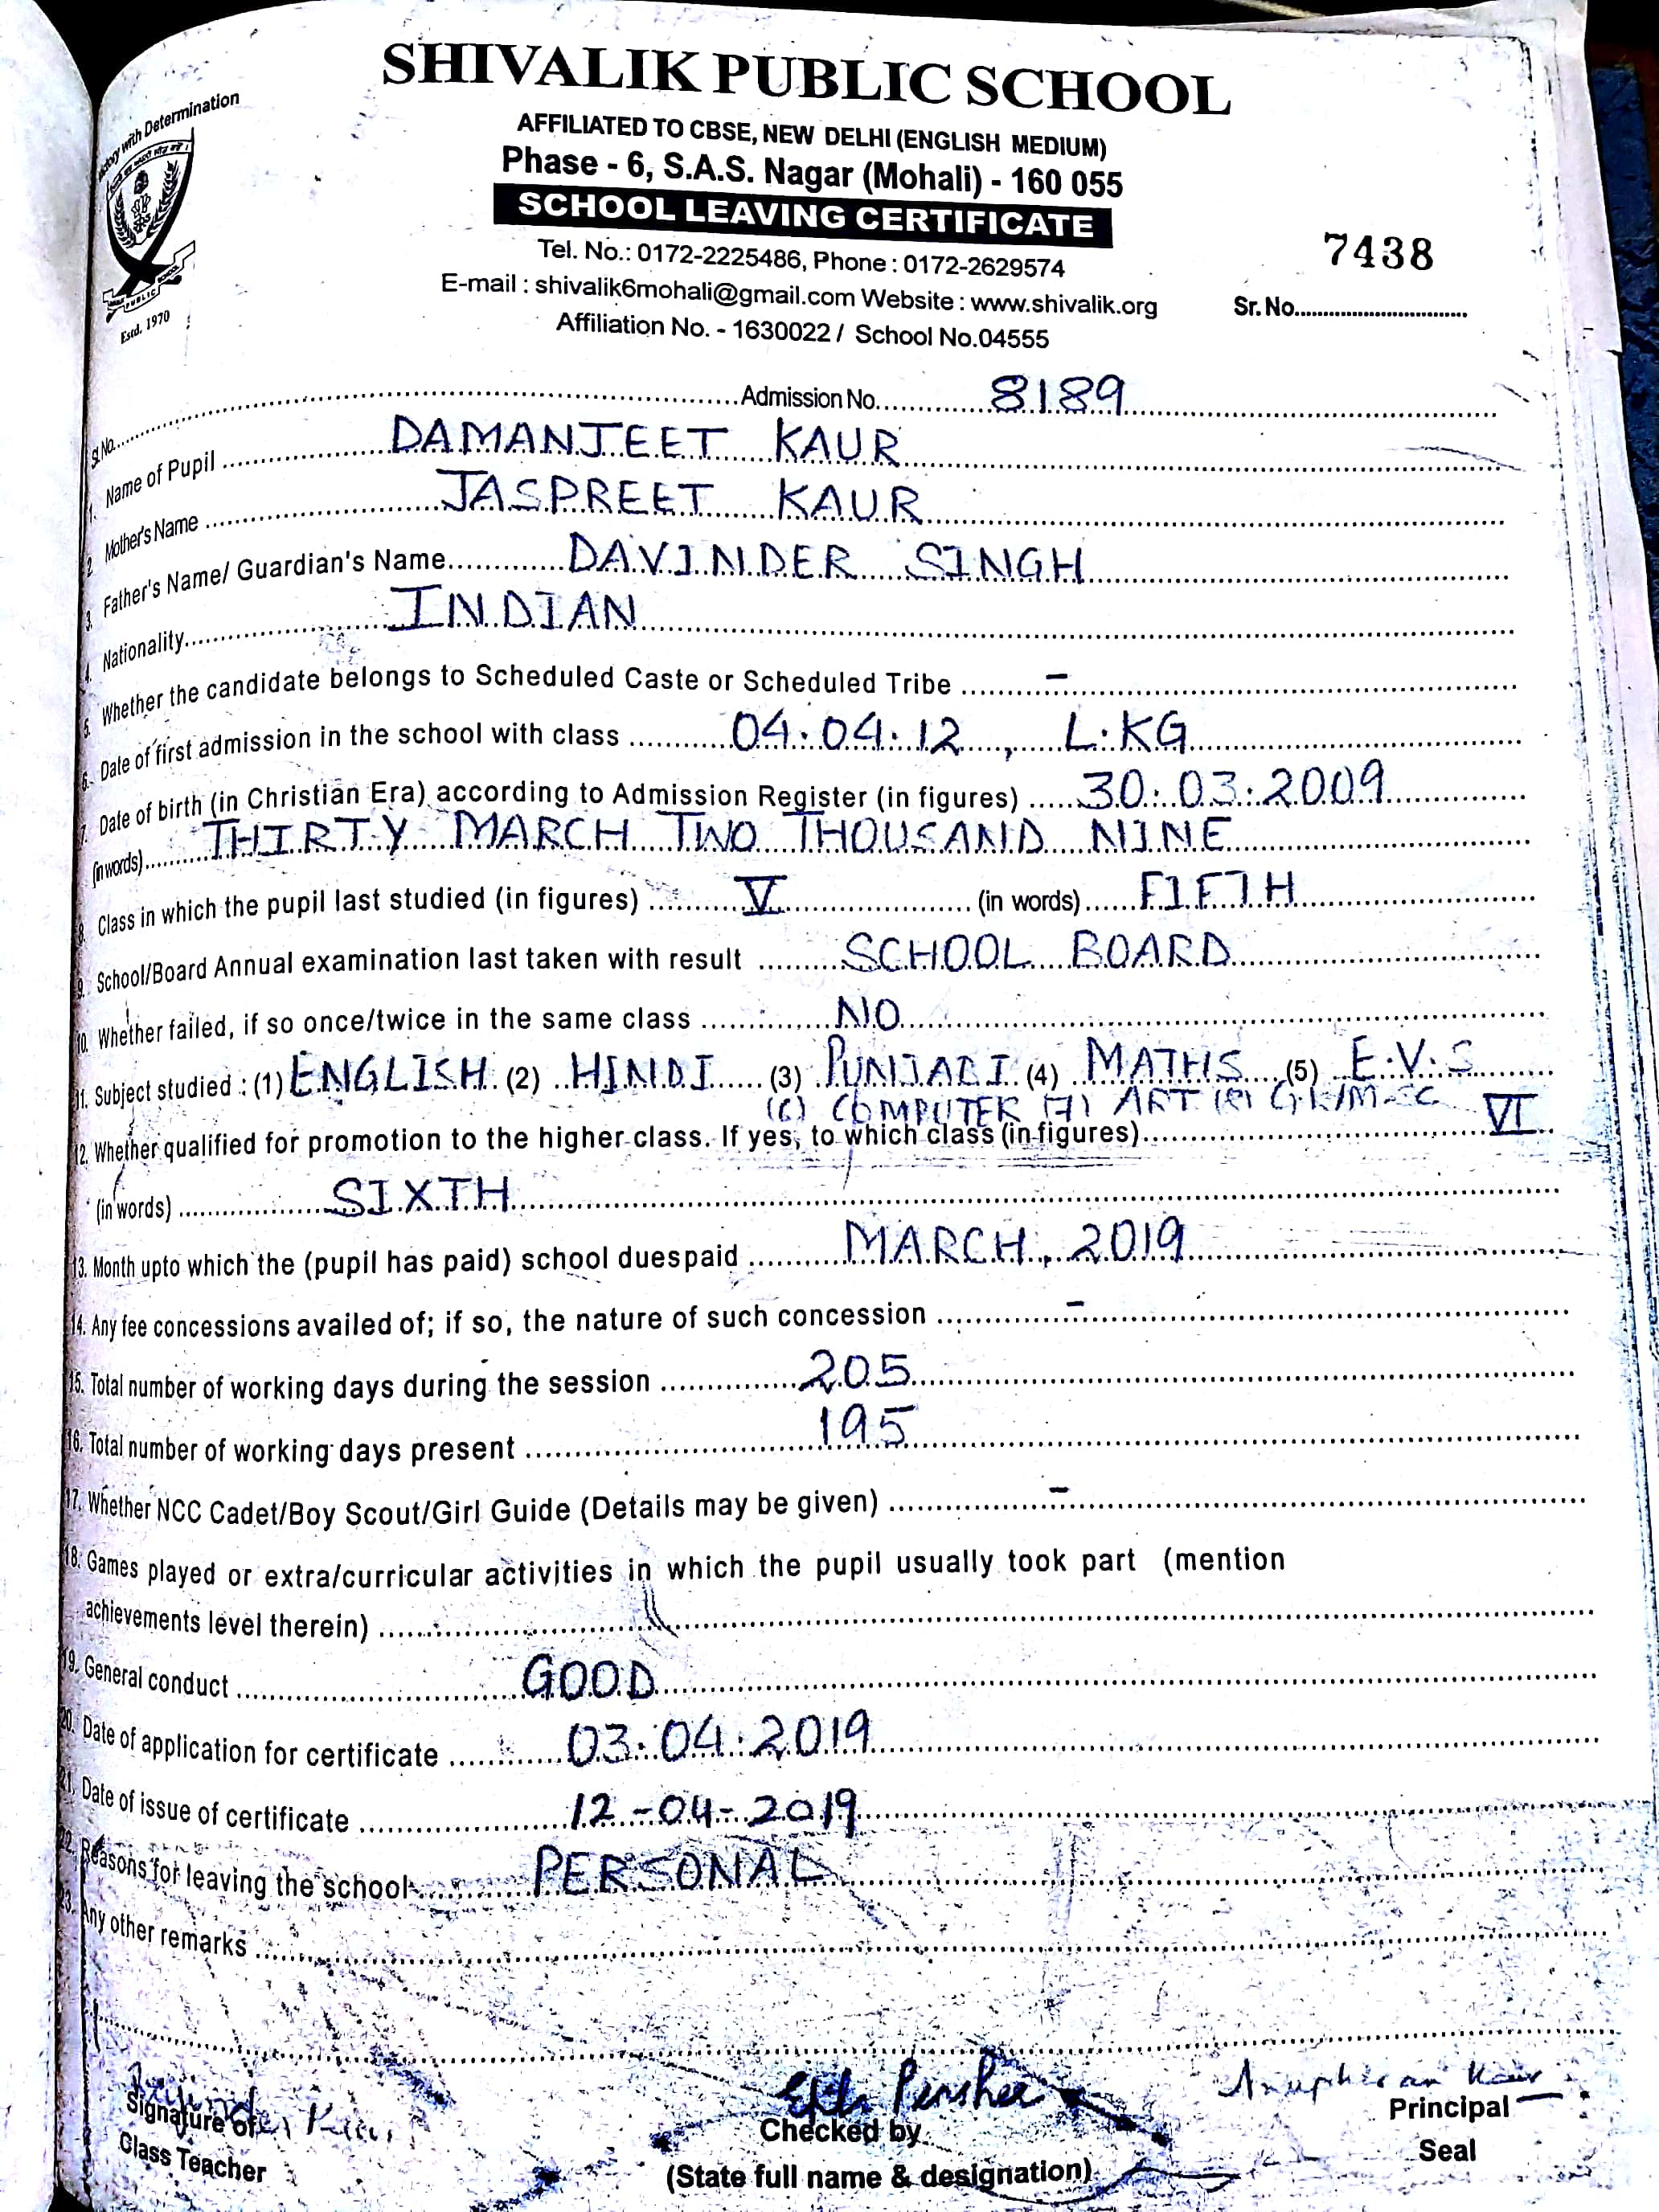 SHIVALIK PUBLIC SCHOOL
AFFILIATED TO CBSE, NEW DELHI (ENGLISH MEDIUM)
Phase - 6, S.A.S. Nagar (Mohali) - 160 055
SCHOOL LEAVING CERTIFICATE
Tel. No.: 0172-2225486, Phone : 0172-2629574
E-mail : shivalik6mohali@gmail.com Website : www.shivalik.org
Affiliation No. - 1630022 / School No.04555
Victory with Determination
PUBLIC SCHOOL
Estd. 1970
7438
Sr. No.
Sl. No. Admission No. 8189
1. Name of Pupil DAMANJEET KAUR
2. Mother's Name JASPREET KAUR
3. Father's Name/ Guardian's Name DAVINDER SINGH
4. Nationality INDIAN
5. Whether the candidate belongs to Scheduled Caste or Scheduled Tribe -
6. Date of first admission in the school with class 04.04.12, L.KG
7. Date of birth (in Christian Era) according to Admission Register (in figures) 30.03.2009
(in words) THIRTY MARCH TWO THOUSAND NINE
8. Class in which the pupil last studied (in figures) V (in words) FIFTH
9. School/Board Annual examination last taken with result SCHOOL BOARD
10. Whether failed, if so once/twice in the same class NO
11. Subject studied : (1) ENGLISH (2) HINDI (3) PUNJABI (4) MATHS (5) E.V.S
(6) COMPUTER (7) ART (8) G.K/M.SC
12. Whether qualified for promotion to the higher class. If yes, to which class (in figures) VI
(in words) SIXTH
13. Month upto which the (pupil has paid) school duespaid MARCH, 2019
14. Any fee concessions availed of; if so, the nature of such concession -
15. Total number of working days during the session 205
16. Total number of working days present 195
17. Whether NCC Cadet/Boy Scout/Girl Guide (Details may be given) -
18. Games played or extra/curricular activities in which the pupil usually took part (mention
achievements level therein)
19. General conduct GOOD
20. Date of application for certificate 03.04.2019
21. Date of issue of certificate 12-04-2019
22. Reasons for leaving the school PERSONAL
23. Any other remarks
Signature of
Class Teacher
Checked by
(State full name & designation)
Principal
Seal